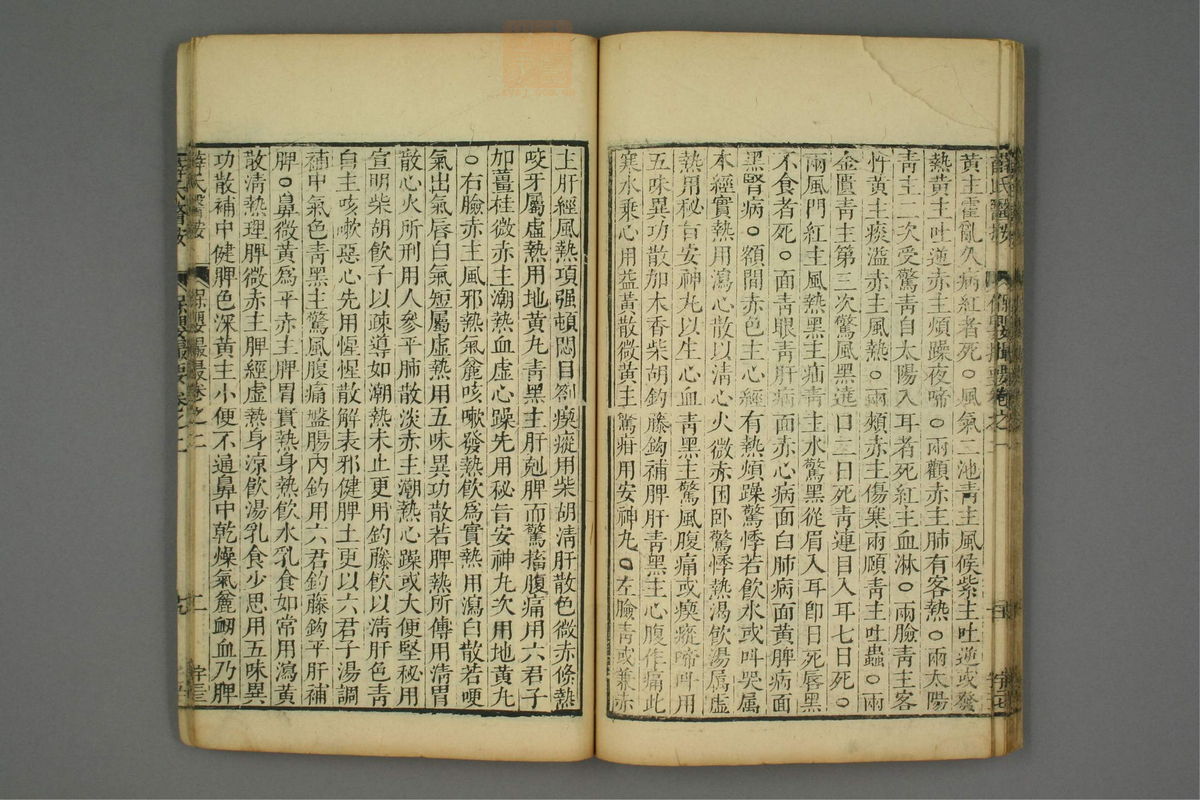 黃主霍亂久病紅者死○風氣二池青主風候紫主吐逆或發
熱黃主吐逆赤主煩躁夜啼○兩顴赤主肺有客熱○兩太陽
青主二次受驚青自太陽入耳者死紅主血淋○兩臉青主客
忤黃主痰溢赤主風熱○兩頰赤主傷寒兩頤青主吐蟲○兩
金匱青主第三次驚風黑遶口三日死青連目入耳七日死○
兩風門紅主風熱黑主疝青主水驚黑從眉入耳卽日死唇黑
不食者死○面青眼青肝病面赤心病面白肺病面黃脾病面
黑腎病○額間赤色主心經有熱煩躁驚悸若飲水或叫哭属
本經實熱用瀉心散以清心火微赤困卧驚悸熱渴飲湯属虛
熱用秘旨安神丸以生心血青黑主驚風腹痛或瘈瘲啼叫用
五味異功散加木香柴胡鈎藤鈎補脾肝青黑主心腹作痛此
寒水乗心用益黃散微黃主驚疳用安神丸○左臉青或兼赤
主肝經風熱項强頓悶目劄瘈瘲用柴胡清肝散色微赤倏熱
咬牙屬虛熱用地黃丸青黑主肝剋脾而驚搐腹痛用六君子
加薑桂微赤主潮熱血虛心躁先用秘旨安神丸次用地黃丸
○右臉赤主風邪熱氣麄咳嗽發熱飲爲實熱用瀉白散若哽
氣出氣唇白氣短屬虛熱用五味異功散若脾熱所傳用清胃
散心火所刑用人參平肺散淡赤主潮熱心躁或大便堅秘用
宣明柴胡飲子以疎導如潮熱未止更用鈎藤飲以清肝色青
白主咳嗽惡心先用惺惺散解表邪健脾土更以六君子湯調
補中氣色青黑主驚風腹痛盤腸內釣用六君鈎藤鈎平肝補
脾○鼻微黃爲平赤主脾胃實熱身熱飲水乳食如常用瀉黃
散清熱理脾微赤主脾經虛熱身涼飲湯乳食少思用五味異
功散補中健脾色深黃主小便不通鼻中乾燥氣麄衂血乃脾
薛氏醫按 保嬰撮要卷之一